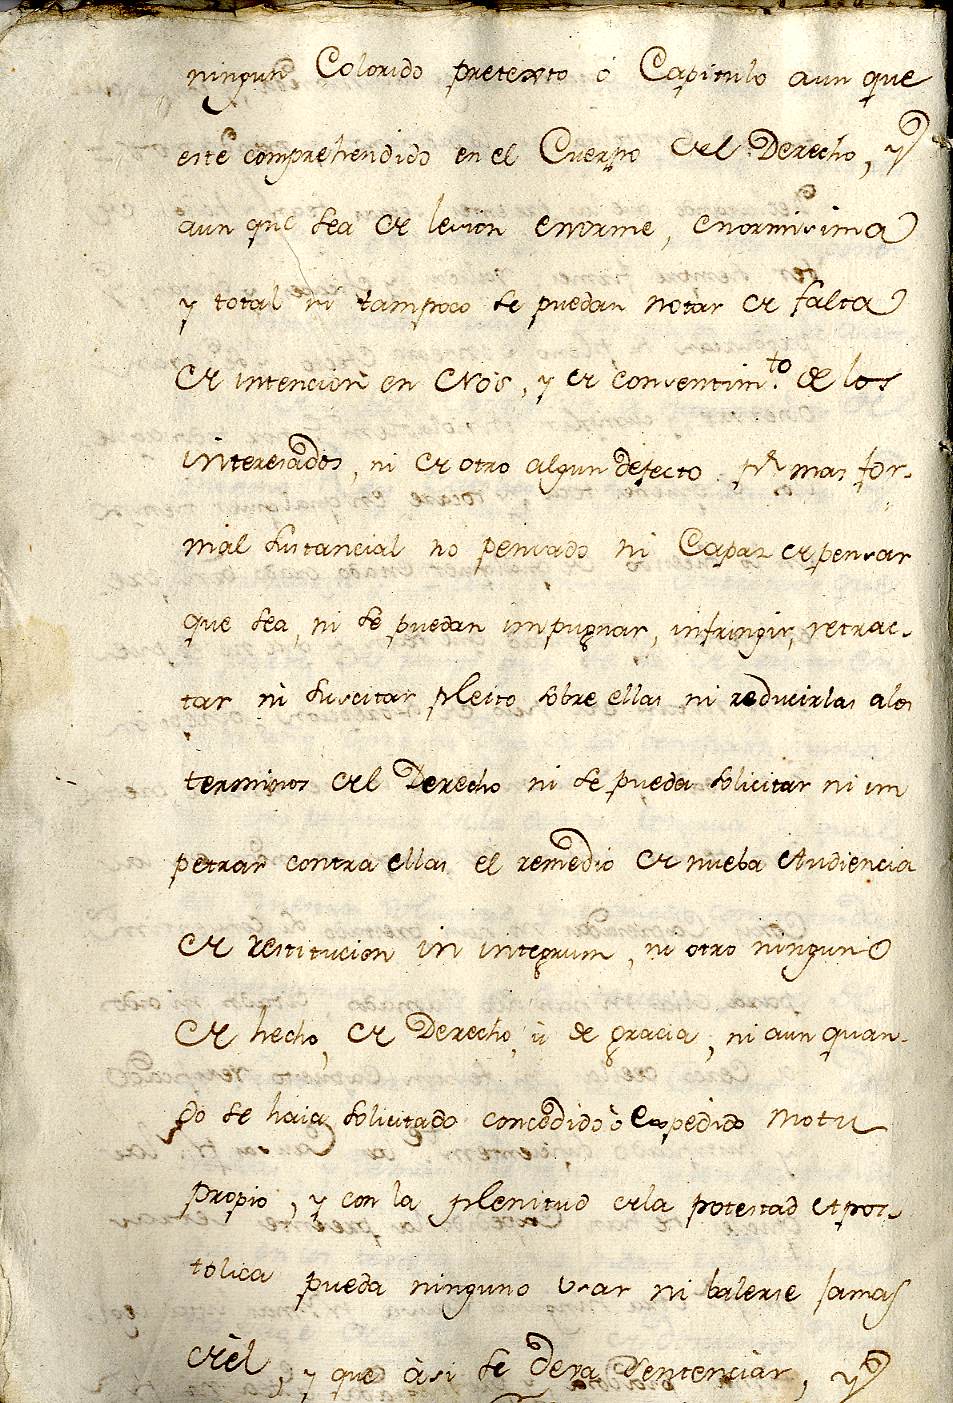 ningun Colorido pretexto ó Capitulo aun que
esté comprehendido en el Cuerpo del Derecho, y
aun que sea de lesion enorme, enormisima
y total ni tampoco se puedan notar de falta
de intencion en Nós, y de consentim.to de los
interesados, ni de otro algun defecto p.r mas for-
mal sustancial no pensado ni Capaz de pensar
que sea, ni se puedan impugnar, infringir, retrac-
tar ni suscitar pleito sobre ellas ni reducirlas alos
terminos del Derecho ni se pueda solicitar ni im
petrar contra ellas el remedio de nueba Audiencia
de restitucion in integrum, ni otro ninguno
de hecho, de Derecho, ù de gracia, ni aun quan-
do se haia solicitado concedido ò expedido Motu
propio, y con la plenitud dela potestad Apos-
tolica pueda ninguno usar ni balerse Jamas
dèl, y que àsi se deva sentenciàr, y